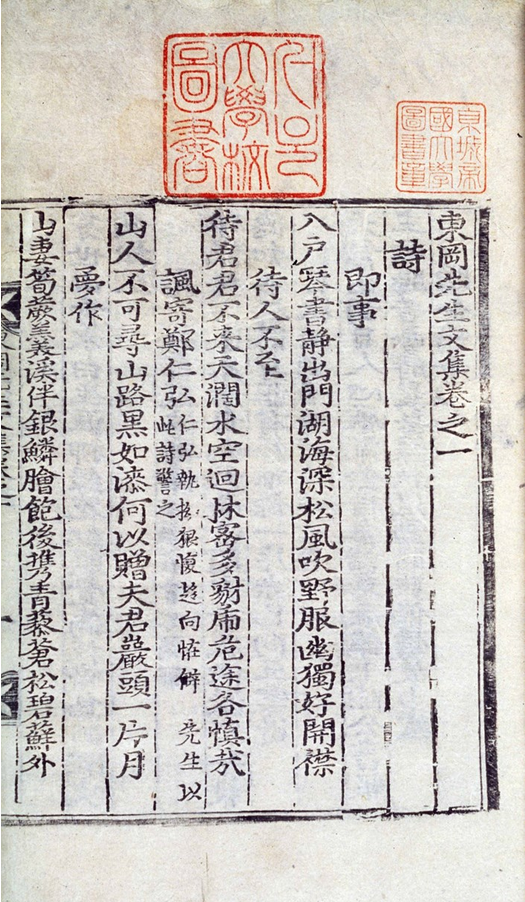 서울
大學校
圖書
京城帝
國大學
圖書章
東岡先生文集卷之一
詩
即事
入戶琴書靜出門湖海深松風吹野服幽獨好開襟
待人不至
待君君不來天濶水空迴林密多豺虎危途各愼哉
諷寄鄭仁弘
仁弘執拗狠愎趍向恠僻 先生以
此詩警之
山人不可尋山路黑如漆何以贈夫君巖頭一片月
夢作
山妻筍蕨羹溪伴銀鱗膾飽後携青藜蒼松碧蘚外